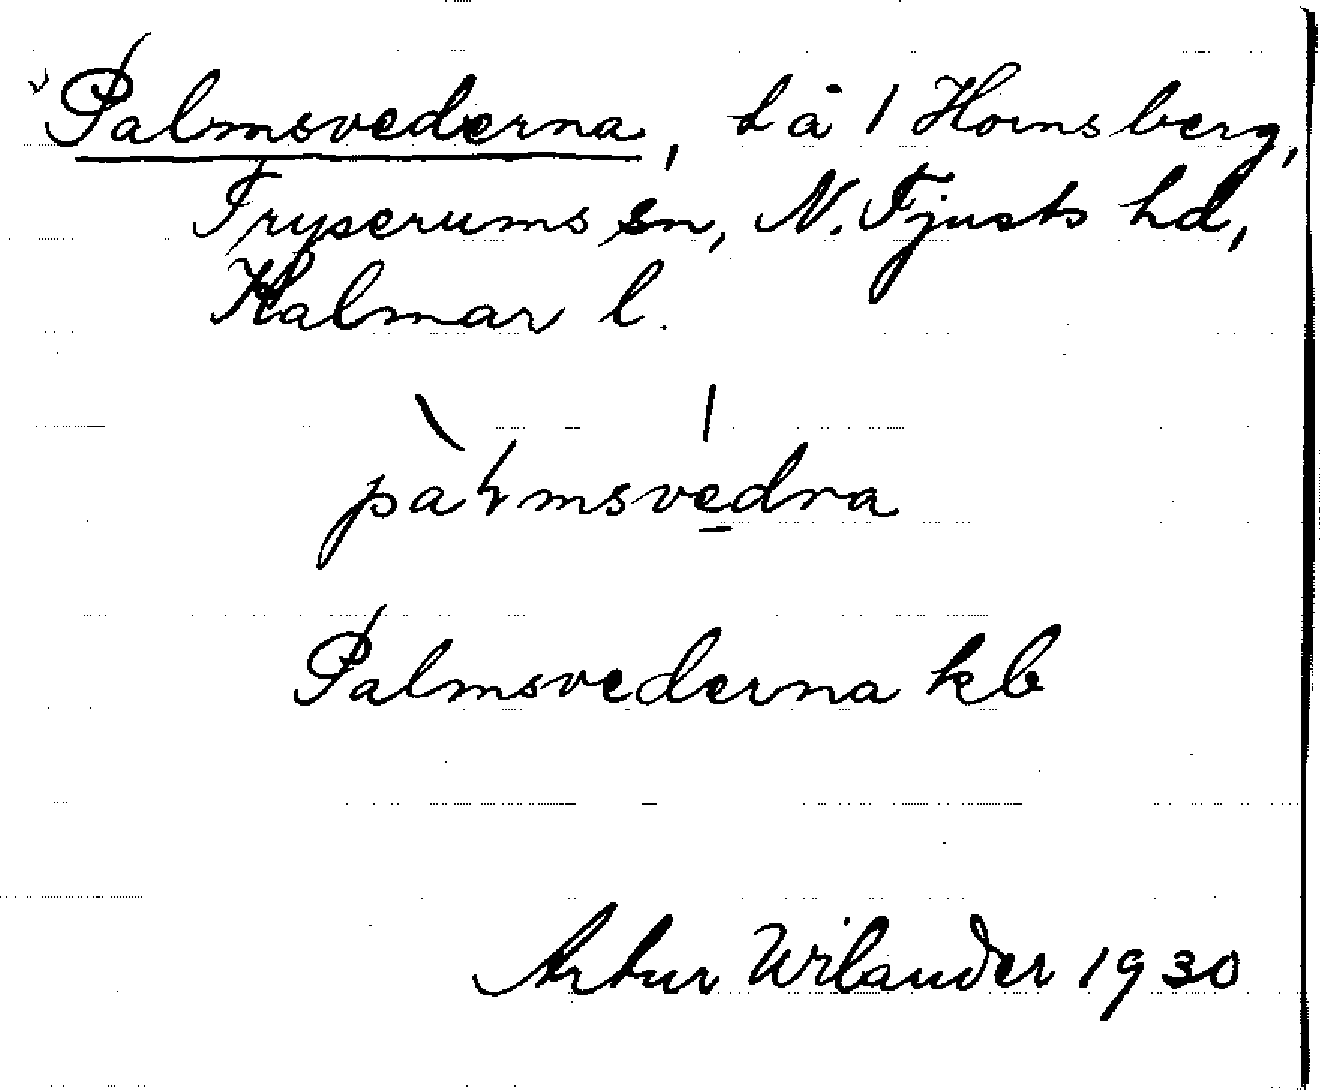 Palmsvederna, på 1 Hornsberg,
Tryserums sn, N. Tjusts hd,
Kalmar l.
pàɫmsvedra
Palmsvederna kb
Artur Wilander 1930